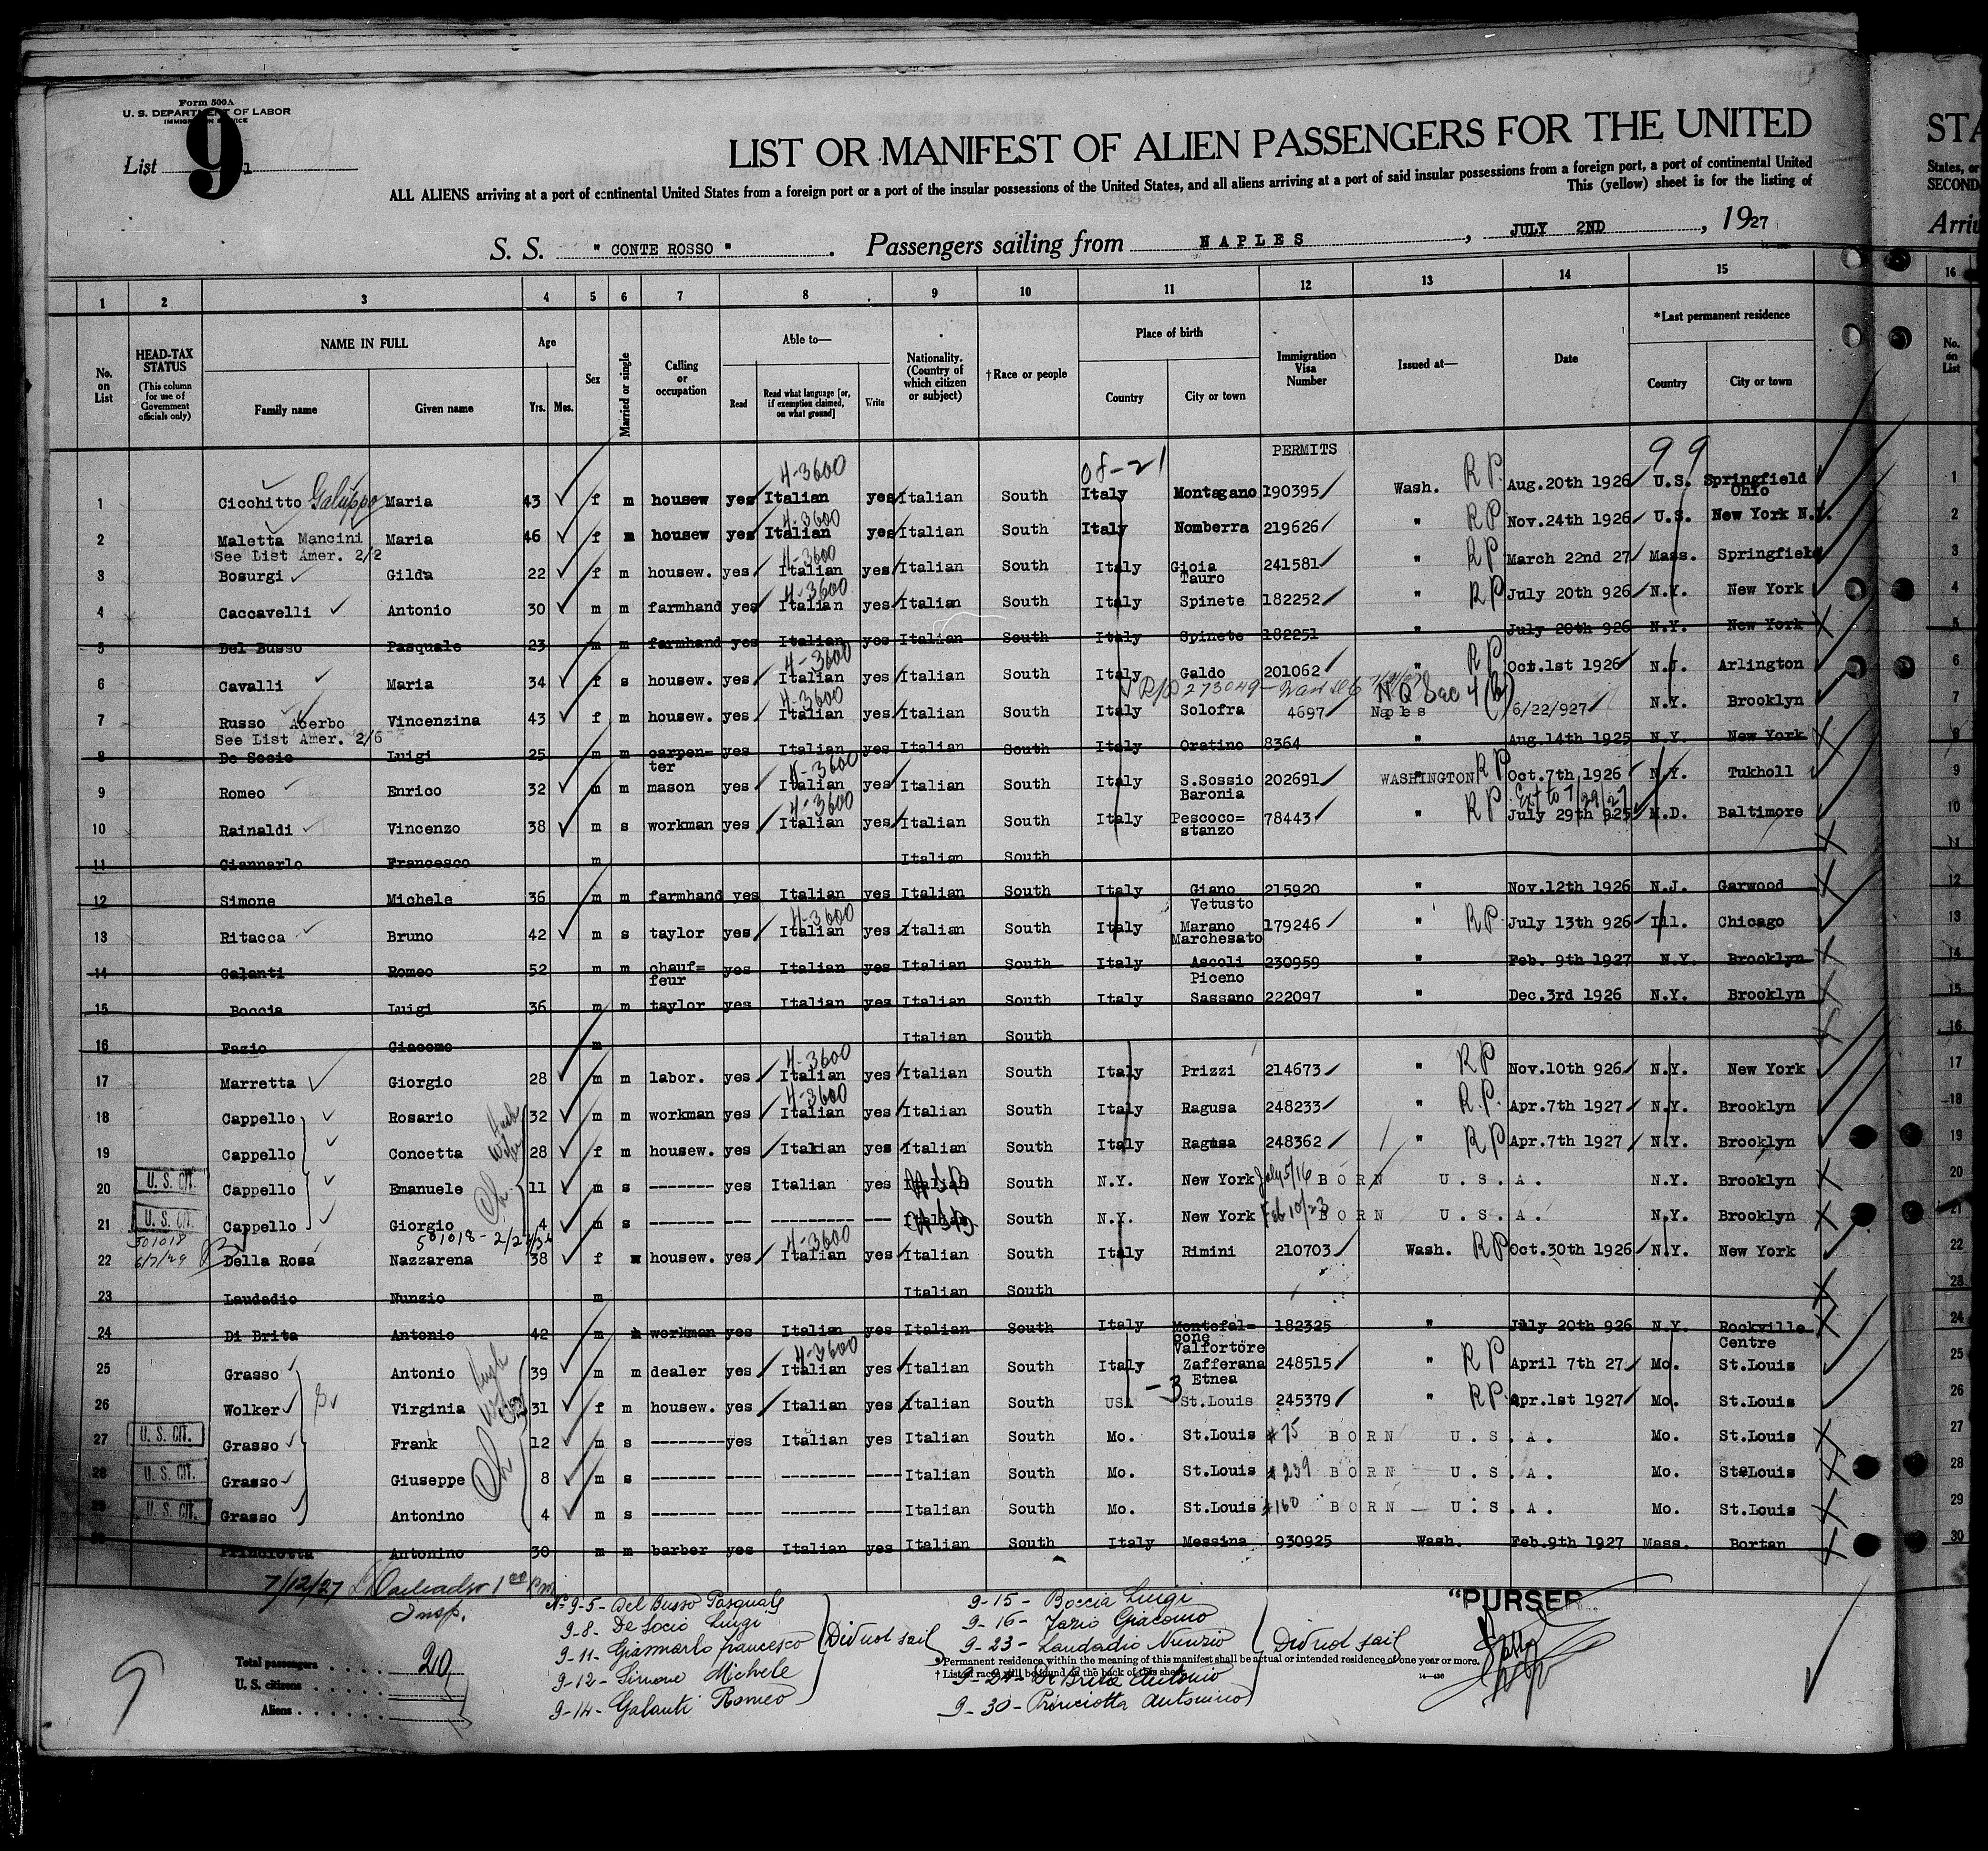 Form 500A
U. S. DEPARTMENT OF LABOR
IMMIGRATION SERVICE
List 9 1
LIST OR MANIFEST OF ALIEN PASSENGERS FOR THE UNITED
ALL ALIENS arriving at a port of continental United States from a foreign port or a port of the insular possessions of the United States, and all aliens arriving at a port of said insular possessions from a foreign port, a port of continental United
This (yellow) sheet is for the listing of
S. S. " CONTE ROSSO " . Passengers sailing from NAPLES , JULY 2ND , 1927
STA
States, or
SECOND
Arriv
1 2 3 4 5 6 7 8 9 10 11 12 13 14 15 16
No. on List
HEAD-TAX STATUS (This column for use of Government officials only)
NAME IN FULL Family name Given name
Age Yrs. Mos.
Sex
Married or single
Calling or occupation
Able to— Read Read what language [or, if exemption claimed, on what ground] Write
Nationality. (Country of which citizen or subject)
†Race or people
Place of birth Country City or town
Immigration Visa Number
Issued at—
Date
*Last permanent residence Country City or town
No. on List
PERMITS
4-3600 08-21 99
1 Cicchitto Galuppo Maria 43 f m housew yes Italian yes Italian South Italy Montagano 190395 Wash. RP Aug.20th 1926 U.S. Springfield Ohio 1
4-3600
2 Maletta Mancini Maria 46 f m housew yes Italian yes Italian South Italy Nomberra 219626 " RP Nov.24th 1926 U.S. New York N.Y. 2
See List Amer. 2/2 4-3600
3 Bosurgi Gilda 22 f m housew. yes Italian yes Italian South Italy Gioia Tauro 241581 " RP March 22nd 27 Mass. Springfield 3
4-3600
4 Caccavelli Antonio 30 m m farmhand yes Italian yes Italian South Italy Spinete 182252 " RP July 20th 926 N.Y. New York 4
5 Del Busso Pasquale 23 m m farmhand yes Italian yes Italian South Italy Spinete 182251 " July 20th 926 N.Y. New York 5
4-3600
6 Cavalli Maria 34 f s housew. yes Italian yes Italian South Italy Galdo 201062 " RP Oct.1st 1926 N.J. Arlington 6
4-3600 R/P 273049 NQ Sec 4 (b)
7 Russo Acerbo Vincenzina 43 f m housew. yes Italian yes Italian South Italy Solofra 4697 Naples 6/22/927 N.Y. Brooklyn 7
See List Amer. 2/6
8 De Socio Luigi 25 m m carpen=ter yes Italian yes Italian South Italy Oratino 8364 " Aug.14th 1925 N.Y. New York 8
4-3600
9 Romeo Enrico 32 m m mason yes Italian yes Italian South Italy S.Sossio Baronia 202691 WASHINGTON RP Oct.7th 1926 N.Y. Tukholl 9
4-3600 Ext to 7/29/27
10 Rainaldi Vincenzo 38 m s workman yes Italian yes Italian South Italy Pescoco=stanzo 78443 " RP July 29th 925 M.D. Baltimore 10
11 Giannarlo Francesco m Italian South 11
12 Simone Michele 36 m m farmhand yes Italian yes Italian South Italy Giano Vetusto 215920 " Nov.12th 1926 N.J. Garwood 12
4-3600
13 Ritacca Bruno 42 m s taylor yes Italian yes Italian South Italy Marano Marchesato 179246 " RP July 13th 926 Ill. Chicago 13
14 Galanti Romeo 52 m m chauf=feur yes Italian yes Italian South Italy Ascoli Piceno 230959 " Feb. 9th 1927 N.Y. Brooklyn 14
15 Boccia Luigi 36 m m taylor yes Italian yes Italian South Italy Sassano 222097 " Dec.3rd 1926 N.Y. Brooklyn 15
16 Fazio Giacomo m Italian South 16
4-3600
17 Marretta Giorgio 28 m m labor. yes Italian yes Italian South Italy Prizzi 214673 " RP Nov.10th 926 N.Y. New York 17
4-3600
18 Cappello Rosario Husb 32 m m workman yes Italian yes Italian South Italy Ragusa 248233 " R.P. Apr.7th 1927 N.Y. Brooklyn 18
19 Cappello Concetta Wife 28 f m housew. yes Italian yes Italian South Italy Ragusa 248362 " RP Apr.7th 1927 N.Y. Brooklyn 19
20 U. S. CIT. Cappello Emanuele Ch 11 m s -------- yes Italian yes Italian South N.Y. New York July 5/16 BORN U.S.A. N.Y. Brooklyn 20
21 U. S. CIT. Cappello Giorgio 4 m s -------- --- ---------- --- Italian South N.Y. New York Feb 10/23 BORN U.S.A. N.Y. Brooklyn 21
501018 501018 4-3600
22 6/7/29 Della Rosa Nazzarena 38 f m housew. yes Italian yes Italian South Italy Rimini 210703 Wash. RP Oct.30th 1926 N.Y. New York 22
23 Laudadio Nunzio m Italian South 23
24 Di Brita Antonio 42 m m workman yes Italian yes Italian South Italy Montefal=cone Valfortore 182325 " July 20th 926 N.Y. Rockville Centre 24
4-3600
25 Grasso Antonio Husb 39 m m dealer yes Italian yes Italian South Italy Zafferana Etnea 248515 " RP April 7th 27 Mo. St.Louis 25
26 Wolker Virginia 31 f m housew. yes Italian yes Italian South USA -3 St.Louis 245379 " RP Apr.1st 1927 Mo. St.Louis 26
27 U. S. CIT. Grasso Frank 12 m s -------- yes Italian yes Italian South Mo. St.Louis #75 BORN U.S.A. Mo. St.Louis 27
28 U. S. CIT. Grasso Giuseppe Ch 8 m s -------- ---- --------- ---- Italian South Mo. St.Louis #239 BORN U.S.A. Mo. St.Louis 28
29 U. S. CIT. Grasso Antonino 4 m s -------- ---- --------- ---- Italian South Mo. St.Louis #160 BORN U.S.A. Mo. St.Louis 29
30 Princiotta Antonino 30 m m barber yes Italian yes Italian South Italy Messina 930925 Wash. Feb.9th 1927 Mass. Bortan 30
7/12/27 1 00 Pm
Insp.
No 9-5- Del Busso Pasquale
9-8- De Socio Luigi
9-11- Giannarlo Francesco
9-12- Simone Michele
9-14- Galanti Romeo
Did not sail
9-15- Boccia Luigi
9-16- Fazio Giacomo
9-23- Laudadio Nunzio
9-24- Di Brita Antonio
9-30- Princiotta Antonino
Did not sail
"PURSER
Total passengers . . . . . 20
U. S. citizens . . . . . .
Aliens . . . . . .
9
* Permanent residence within the meaning of this manifest shall be actual or intended residence of one year or more.
† List of races will be found on the back of this sheet.
14—430